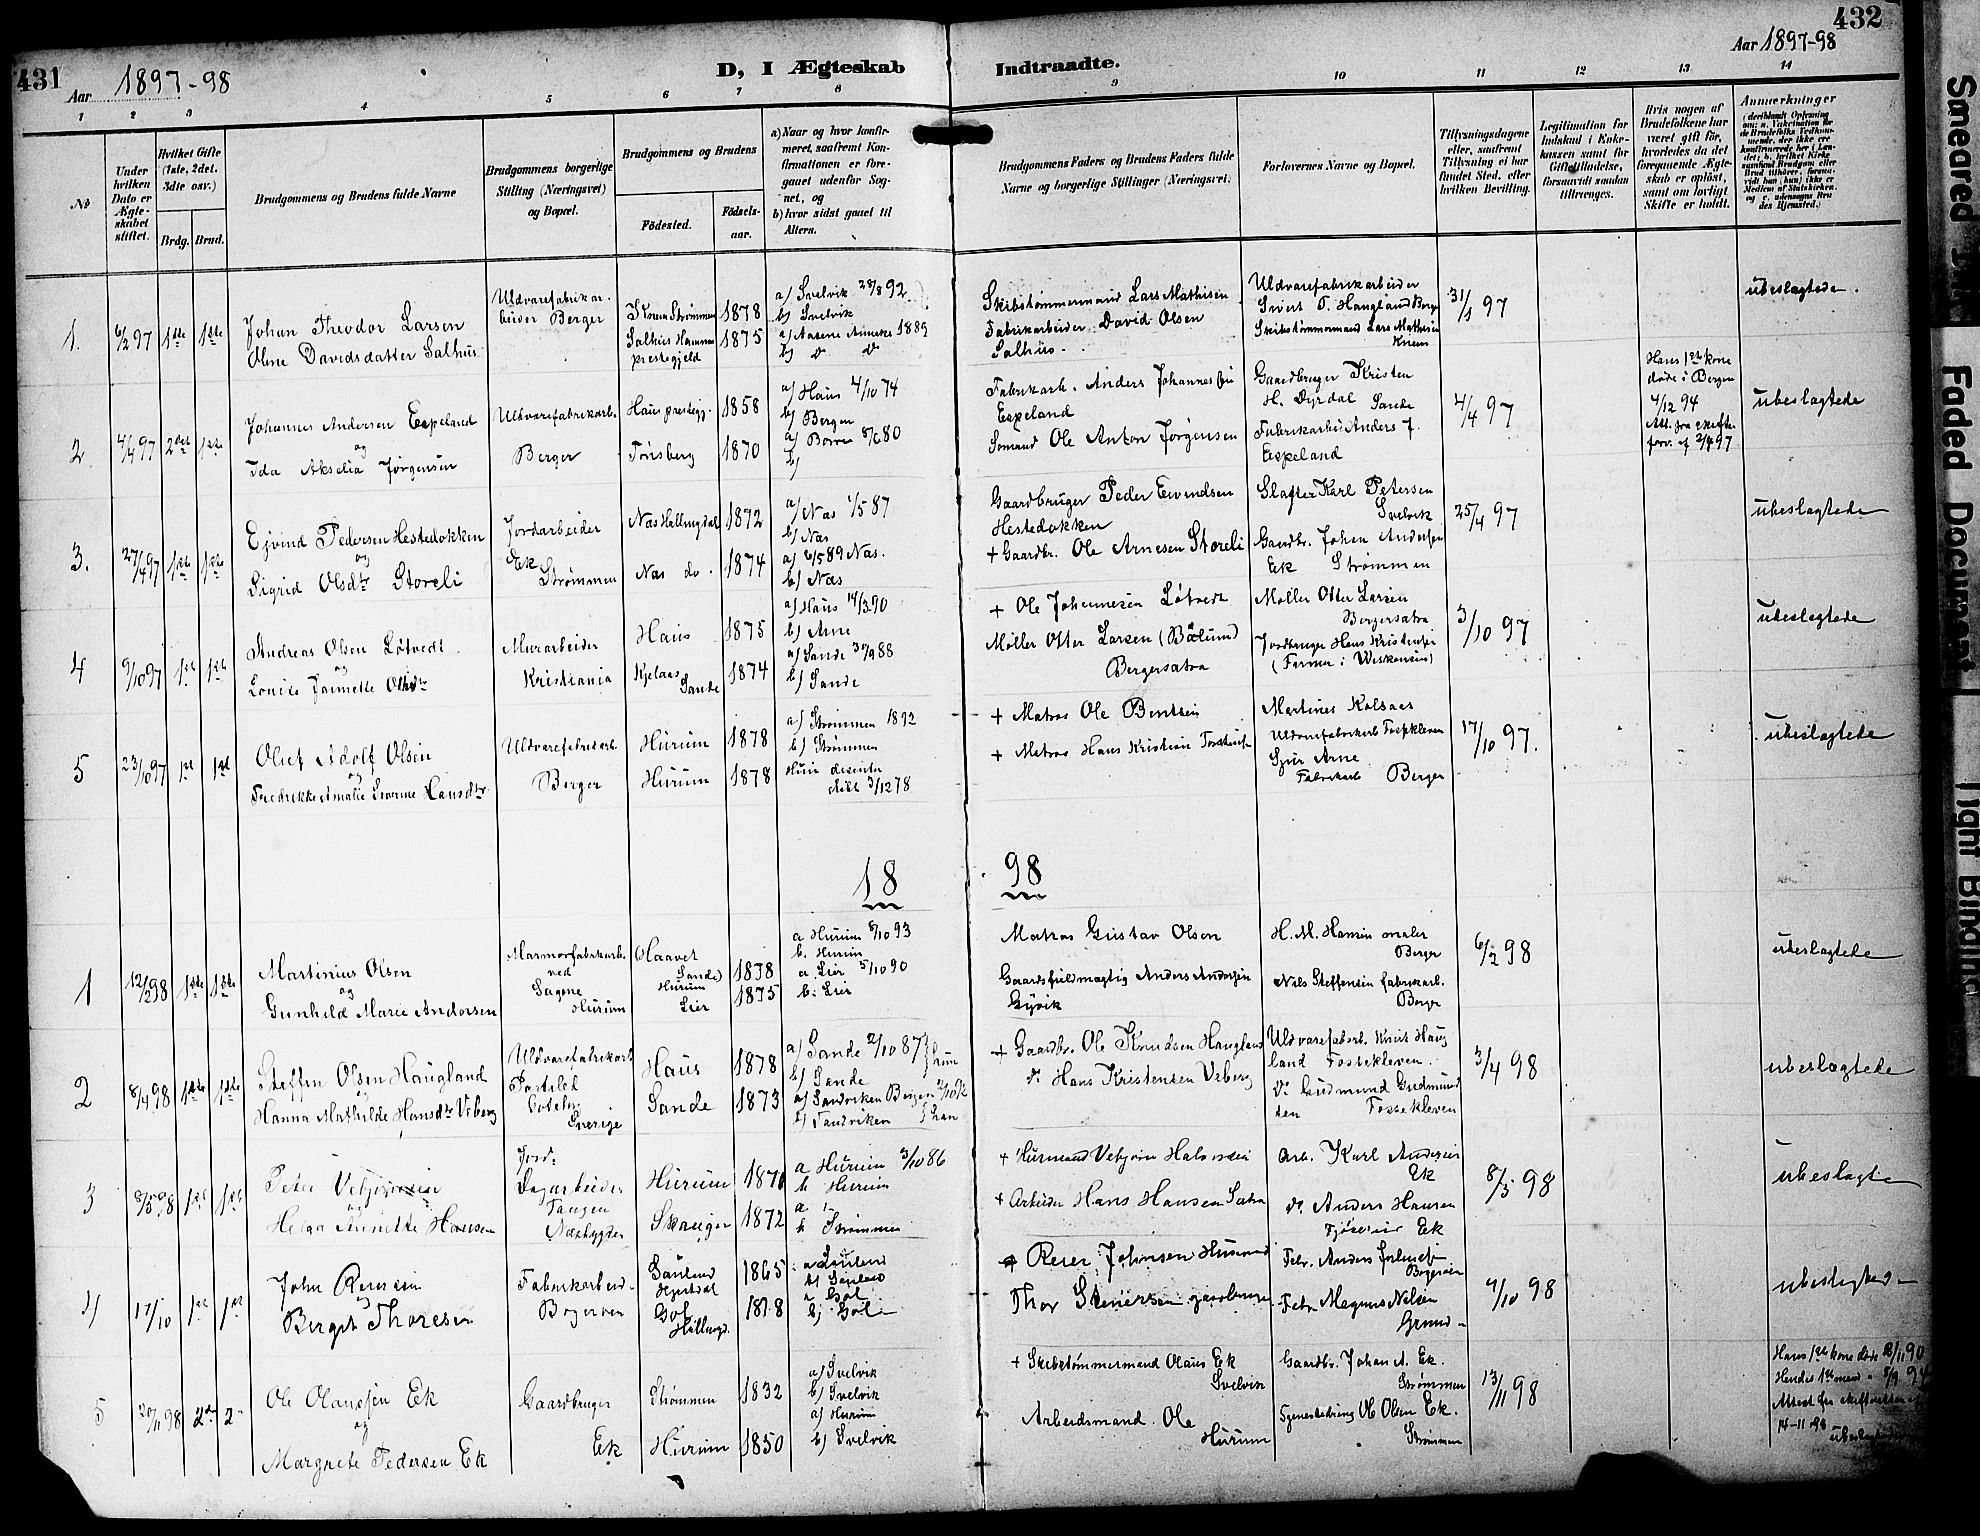 431
Aar 1897-98
D, I Ægteskab
Indtraadte.
Aar 1897-98
432
1 2 3 4 5 6 7 8 9 10 11 12 13 14
No
Under hvilken Dato er Ægteskabet stiftet.
Hvilket Gifte (1ste, 2det, 3dte osv.)
Brdg. Brud.
Brudgommens og Brudens fulde Navne
Brudgommens borgerlige Stilling (Næringsvei) og Bopæl.
Brudgommens og Brudens
Fødested.
Fødsels-aar.
a) Naar og hvor konfirmeret, saafremt Konfirmationen er foregaaet udenfor Sognet, og
b) hvor sidst gaaet til Alters.
Brudgommens Faders og Brudens Faders fulde Navne og borgerlige Stillinger (Næringsvei)
Forlovernes Navne og Bopæl.
Tillysningsdagene eller, saafremt Tillysning ei har fundet Sted, efter hvilken Bevilling.
Legitimation for Indskud i Enkekassen samt for Giftetilladelse, forsaavidt saadan tiltrænges.
Hvis nogen af Brudefolkene har været gift før, hvorledes da det foregaaende Ægteskab er opløst, samt om lovligt Skifte er holdt.
Anmerkninger
1. 6/2 97 1ste 1ste
Johan Theodor Larsen
Oline Davidsdatter Salhus
Uldvarefabrikarbeider Berger
Knem Strømmen 1878
Salhus Hammer prestegjeld 1875
a) Svelvik 28/8 92
b) Svelvik
a) Aasene Anneks 1889
b) do do
Skibstømmermand Lars Mathisen
Fabrikarbeider David Olsen
Salhus.
Uldvarefabrikarbeider
Sivert T. Haugland Berger
Skibstømmermand Lars Mathisen
Knem
31/1 97
ubeslægtede.
2 4/4 97 2det 1ste
Johannes Andersen Espeland
og
Ida Akselia Jørgensen
Uldvarefabrikarb.
Berger
Haus prestegj. 1858
Tønsberg 1870
a) Haus 4/10 74
b) Bergen
a) Borre 8/6 80
b)
Fabrikarb. Anders Johannessen
Espeland
Sømand Ole Anton Jørgensen
Gaardbruger Kristen
H. Dyrdal Sande
Fabrikarbei Anders J.
Espeland
4/4 97
Hans 1ste kone
døde i Bergen
4/12 94
Att. fra skifte-
forv. af 2/4 97
ubeslægtede
3. 27/4 97 1ste 1ste
Ejvind Pedersen Hestedokken
og
Sigrid Olsdtr Storeli
Jordarbeider
Ek
Strømmen
Næs Hallingdal 1872
Næs do. 1874
a) Næs 1/5 87
b) Næs
a) 6/5 89 Næs.
b) Næs
Gaardbruger Peder Eivindsen
Hestedokken
+ Gaardbr. Ole Arnesen Storeli
Slagter Karl Petersen
Svelvik
Gaardbr. Johan Andersen
Ek Strømmen
25/4 97
ubeslægtede
4 9/10 97 1ste 1ste
Andreas Olsen Løtvedt
og
Lovise Jannette Ottsdtr
Murarbeider
Kristiania
Haus 1875
Kjelaas Sande 1874
a) Haus 14/3 90
b) Arne
a) Sande 30/9 88
b) Sande
+ Ole Johannesen Løtvedt
Møller Otter Larsen (Bælum)
Bergersætra
Møller Otter Larsen
Bergersætra
Jordbruger Hans Kristensen
(Farmer i Wiskonsin)
3/10 97
ubeslægtede
5 23/10 97 1ste 1ste
Oluf Adolf Olsen
og
Fredrikke Amalie Severine Hansdtr
Uldvarefabrikarb.
Berger
Hurum 1878
Hurum 1878
a) Strømmen 1892
b) Strømmen
Hun desenter
døbt 3/12 78
+ Matros Ole Bentsen
+ Matros Hans Kristian
Martines Kolsaas
Uldvarefabrikarb Fossekleven
Sjur Arne
Fabrikarb Berger
17/10 97.
ubeslægtede
18 98
1 12/2 98 1ste 1ste
Martinius Olsen
og
Gunhild Marie Andersen
Marmorfabrikarb.
ved
Sagene
Hurum
Haavet
Sande)
Hurum 1878
Lier 1875
a Hurum 8/10 93
b. Hurum
a. Lier 5/10 90
b. Lier
Matros Gustav Olsen
Gaardsfuldmægtig Anders Andersen
Gjøvik
H. M. Hansen maler
Berger
Nils Steffensen fabrikarb.
Berger
6/2 98
ubeslægtede
2 8/4 98 1ste 1ste
Steffen Olsen Haugland
Hanna Mathilde Hansdtr Veberg
Uldvarefabrikarb
Sverige
Haus 1878
Sande 1873
a) Sande 2/10 87
b) Sande } hun
a) Sandviken Bergen
b) Sandviken } han
+ Gaardbr. Ole Knudsen Haugland
do Hans Kristensen Veberg
Uldvarefabrb. Knut Haug
land Fossekleven.
do Gudmund Gudmund
sen Fossekleven
3/4 98
ubeslægtede
3 8/5 98 1ste 1ste
Peter
og
Helga Annette Hansen
Jord-
Dagarbeider
Tangen
Næsbygden
Hurum 1870
Skauger 1872
a Hurum 3/10 86
b Hurum
a
b Strømmen
+ Husmand Vebjørn Halvorsen
+ Arbeider Hans Hansen Sætra
Arb. Karl Andersen
Ek
do Anders Hansen
Ek
8/5 98
ubeslægte
4 17/10 1ste 1ste
John Reiersen
og
Berget Thoresen
Fabrikarbeid.
Bogerøen
Sauland Hjertdal 1865
Gol Hallingd. 1878
a Sauland
b) Sauland
a Gol
b) Gol
+ Reier Johnsen Husmand
Thor Steinersen gaardbruger
Fabr. Anders
Bogerøen
Fabr Magnus Nelsen
Grund
9/10 98
ubeslægtede
5 20/11 98 2det 2
Ole Olaussen Ek
og
Margrete Pedersen Ek
Gaardbruger
Ek
Strømmen 1832
Hurum 1850
a) Svelvik
b) Svelvik
a) Hurum
b) Svelvik
+ Skibstømmermand Olaus Ek
Svelvik
Arbeidsmand. Ole
Hurum
Gaardbr. Johan A. Ek.
Strømmen
Ole Olsen Ek.
Strømmen
13/11 98
Hans 1ste kone døde 12/11 90
Hendes 1ste mand 8/9 94
Attest fra skifteretten af
14-11-98
ubeslægtede
Smeared Ink
Faded Document
Tight Binding